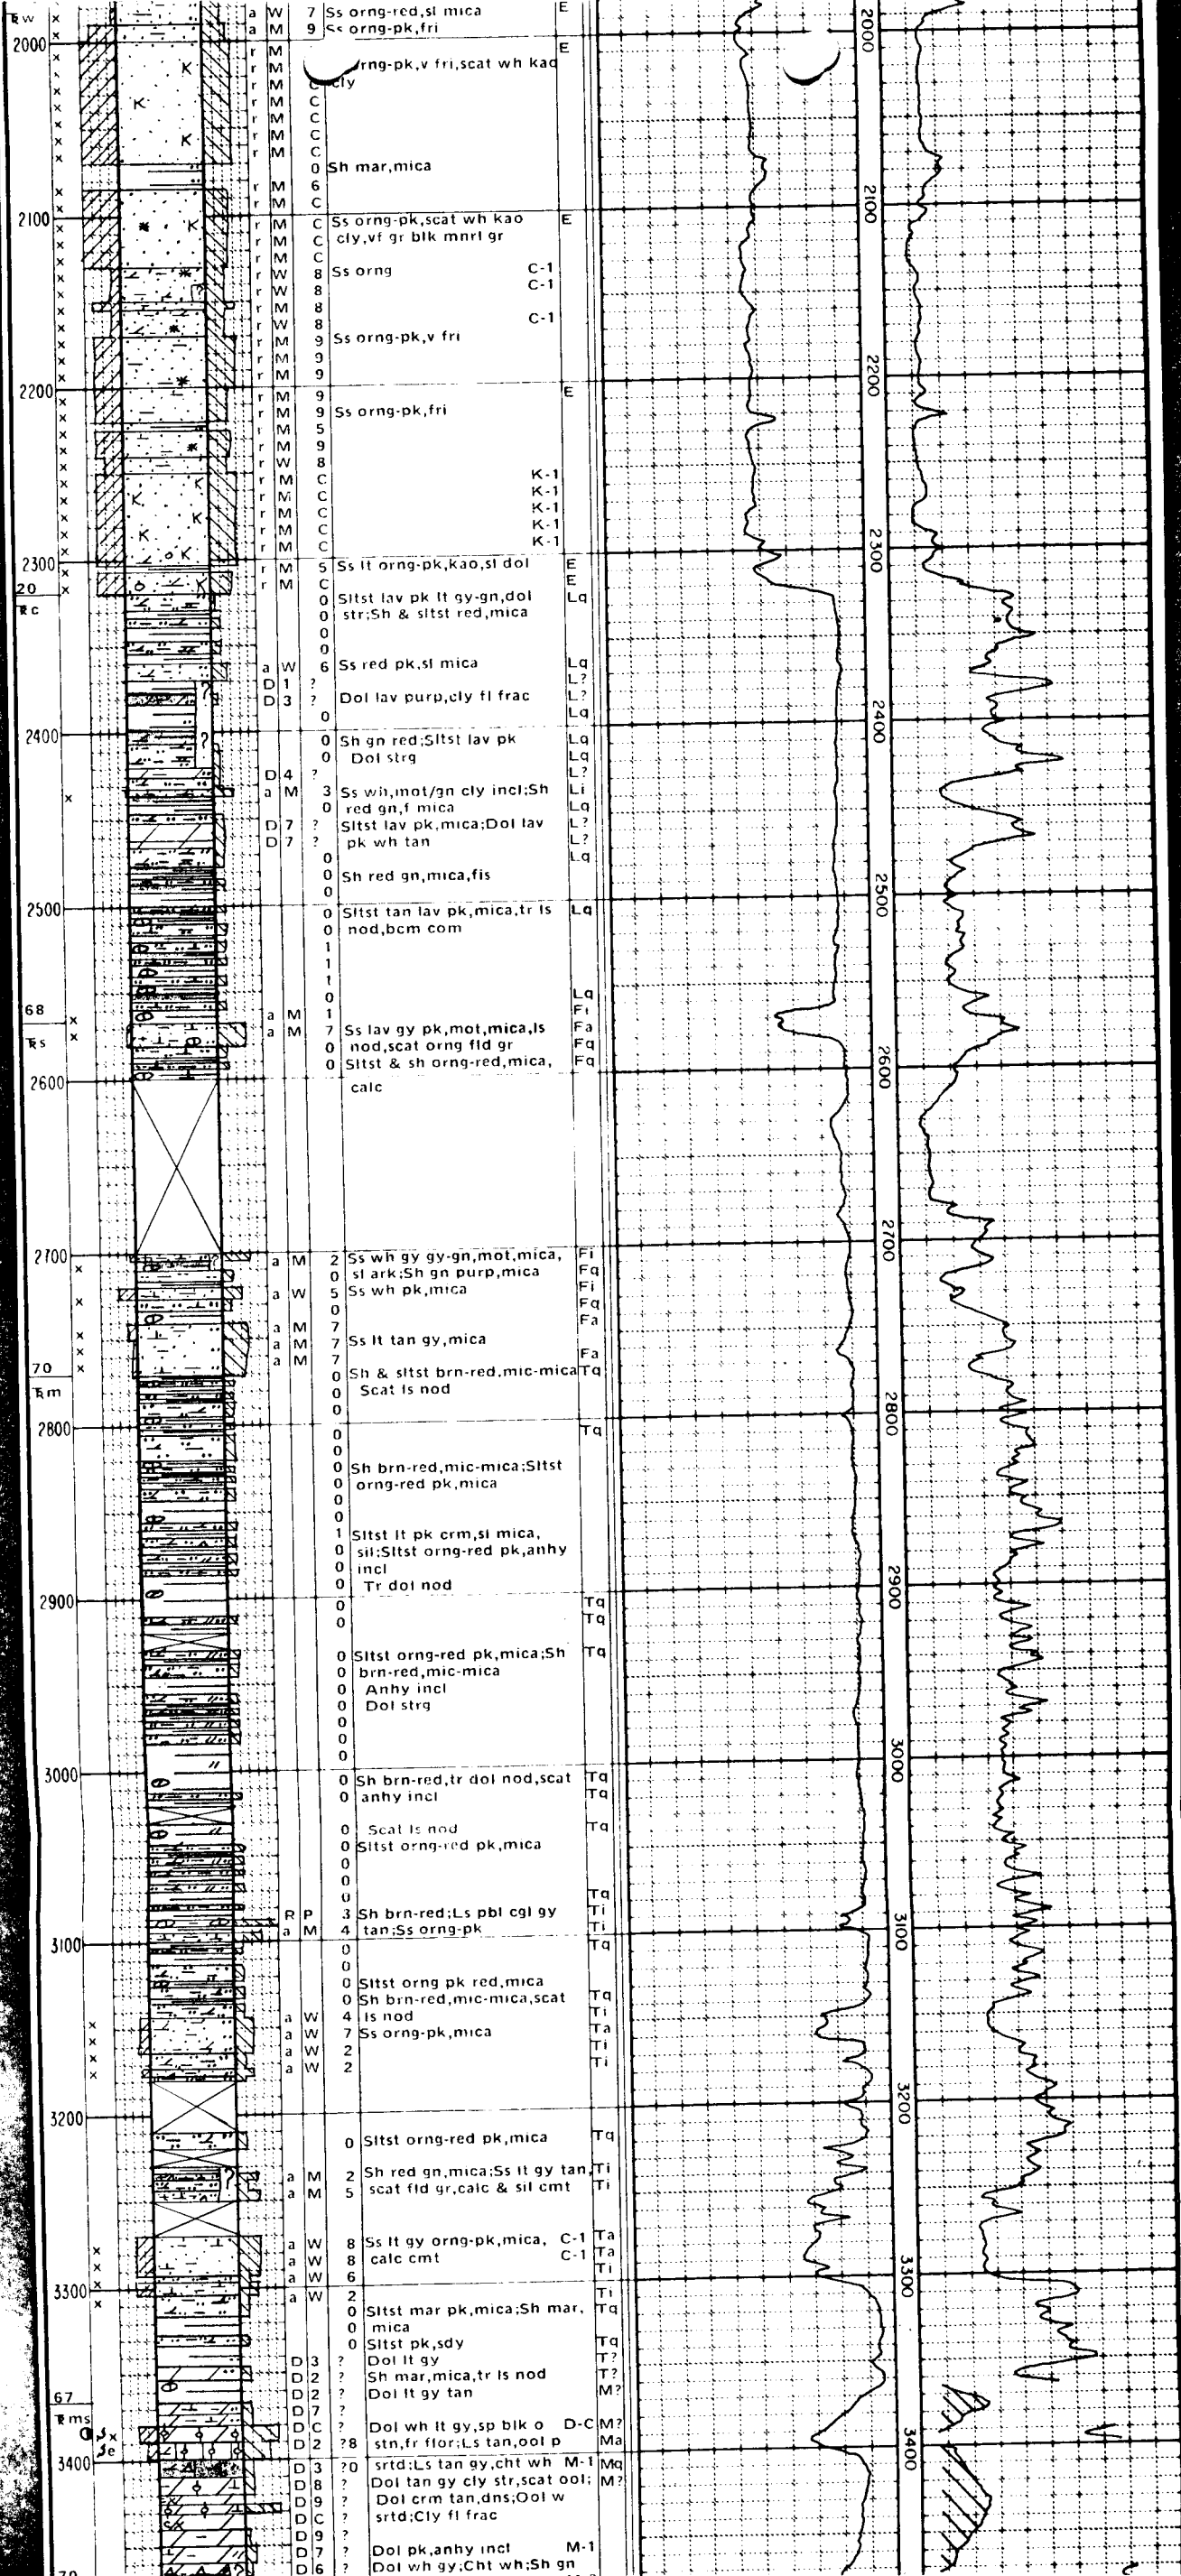 Ꞧw
a W 7 Ss orng-red,sl mica E
a M 9 Ss orng-pk,fri
2000 r M E 2000
r M rng-pk,v fri,scat wh kao
r M C cly
r M C
r M C
r M C
r M C
0 Sh mar,mica
r M 6
r M C
2100 r M C Ss orng-pk,scat wh kao E 2100
r M C cly,vf gr blk mnrl gr
r M C
r W 8 Ss orng C-1
r W 8 C-1
r M 8
r W 8 C-1
r M 9 Ss orng-pk,v fri
r M 9
r M 9
2200 r M 9 E 2200
r M 9 Ss orng-pk,fri
r M 5
r M 9
r W 8
r M C K-1
r M C K-1
r M C K-1
r M C K-1
r M C K-1
2300 r M 5 Ss lt orng-pk,kao,sl dol E 2300
r M C E
20 0 Sltst lav pk lt gy-gn,dol Lq
Ꞧc 0 str;Sh & sltst red,mica
0
0
a W 6 Ss red pk,sl mica Lq
D 1 ? L?
D 3 ? Dol lav purp,cly fl frac L?
0 Lq
2400 0 Sh gn red;Sltst lav pk Lq 2400
0 Dol strg Lq
D 4 ? L?
a M 3 Ss wh,mot/gn cly incl;Sh Li
0 red gn,f mica Lq
D 7 ? Sltst lav pk,mica;Dol lav L?
D 7 ? pk wh tan L?
0 Lq
0 Sh red gn,mica,fis
0
2500 0 Sltst tan lav pk,mica,tr ls Lq 2500
0 nod,bcm com
1
1
t
0 Lq
68 a M 1 Fi
Ꞧs a M 7 Ss lav gy pk,mot,mica,ls Fa
0 nod,scat orng fld gr Fq
0 Sltst & sh orng-red,mica, Fq
2600 calc 2600
2700 a M 2 Ss wh gy gy-gn,mot,mica, Fi 2700
0 sl ark;Sh gn purp,mica Fq
a W 5 Ss wh pk,mica Fi
0 Fq
a M 7 Fa
a M 7 Ss lt tan gy,mica
a M 7 Fa
70 0 Sh & sltst brn-red,mic-mica Tq
Ꞧm 0 Scat ls nod
0
2800 0 Tq 2800
0
0 Sh brn-red,mic-mica;Sltst
0 orng-red pk,mica
0
0
1 Sltst lt pk crm,sl mica,
0 sil;Sltst orng-red pk,anhy
0 incl
0 Tr dol nod
2900 0 Tq 2900
0 Tq
0 Sltst orng-red pk,mica;Sh Tq
0 brn-red,mic-mica
0 Anhy incl
0 Dol strg
0
0
0
3000 0 Sh brn-red,tr dol nod,scat Tq 3000
0 anhy incl Tq
0 Scat ls nod Tq
0 Sltst orng-red pk,mica
0
0
0 Tq
R P 3 Sh brn-red;Ls pbl cgl gy Ti
a M 4 tan;Ss orng-pk Ti
3100 0 Tq 3100
0
0 Sltst orng pk red,mica
0 Sh brn-red,mic-mica,scat Tq
a W 4 ls nod Ti
a W 7 Ss orng-pk,mica Ta
a W 2 Ti
a W 2 Ti
3200 3200
0 Sltst orng-red pk,mica Tq
a M 2 Sh red gn,mica;Ss lt gy tan, Ti
a M 5 scat fld gr,calc & sil cmt Ti
a W 8 Ss lt gy orng-pk,mica, C-1 Ta
a W 8 calc cmt C-1 Ta
a W 6 Ti
3300 a W 2 Ti 3300
0 Sltst mar pk,mica;Sh mar, Tq
0 mica
0 Sltst pk,sdy Tq
D 3 ? Dol lt gy T?
D 2 ? Sh mar,mica,tr ls nod T?
67 D 2 ? Dol lt gy tan M?
Ꞧms D 7 ?
D C ? Dol wh lt gy,sp blk o D-C M?
D 2 ?8 stn,fr flor;Ls tan,ool p Ma
3400 D 3 ?0 srtd;Ls tan gy,cht wh M-1 Mq 3400
D 8 ? Dol tan gy cly str,scat ool; M?
D 9 ? Dol crm tan,dns;Ool w
D C ? srtd;Cly fl frac
D 9 ?
D 7 ? Dol pk,anhy incl M-1
D 6 ? Dol wh gy;Cht wh;Sh gn